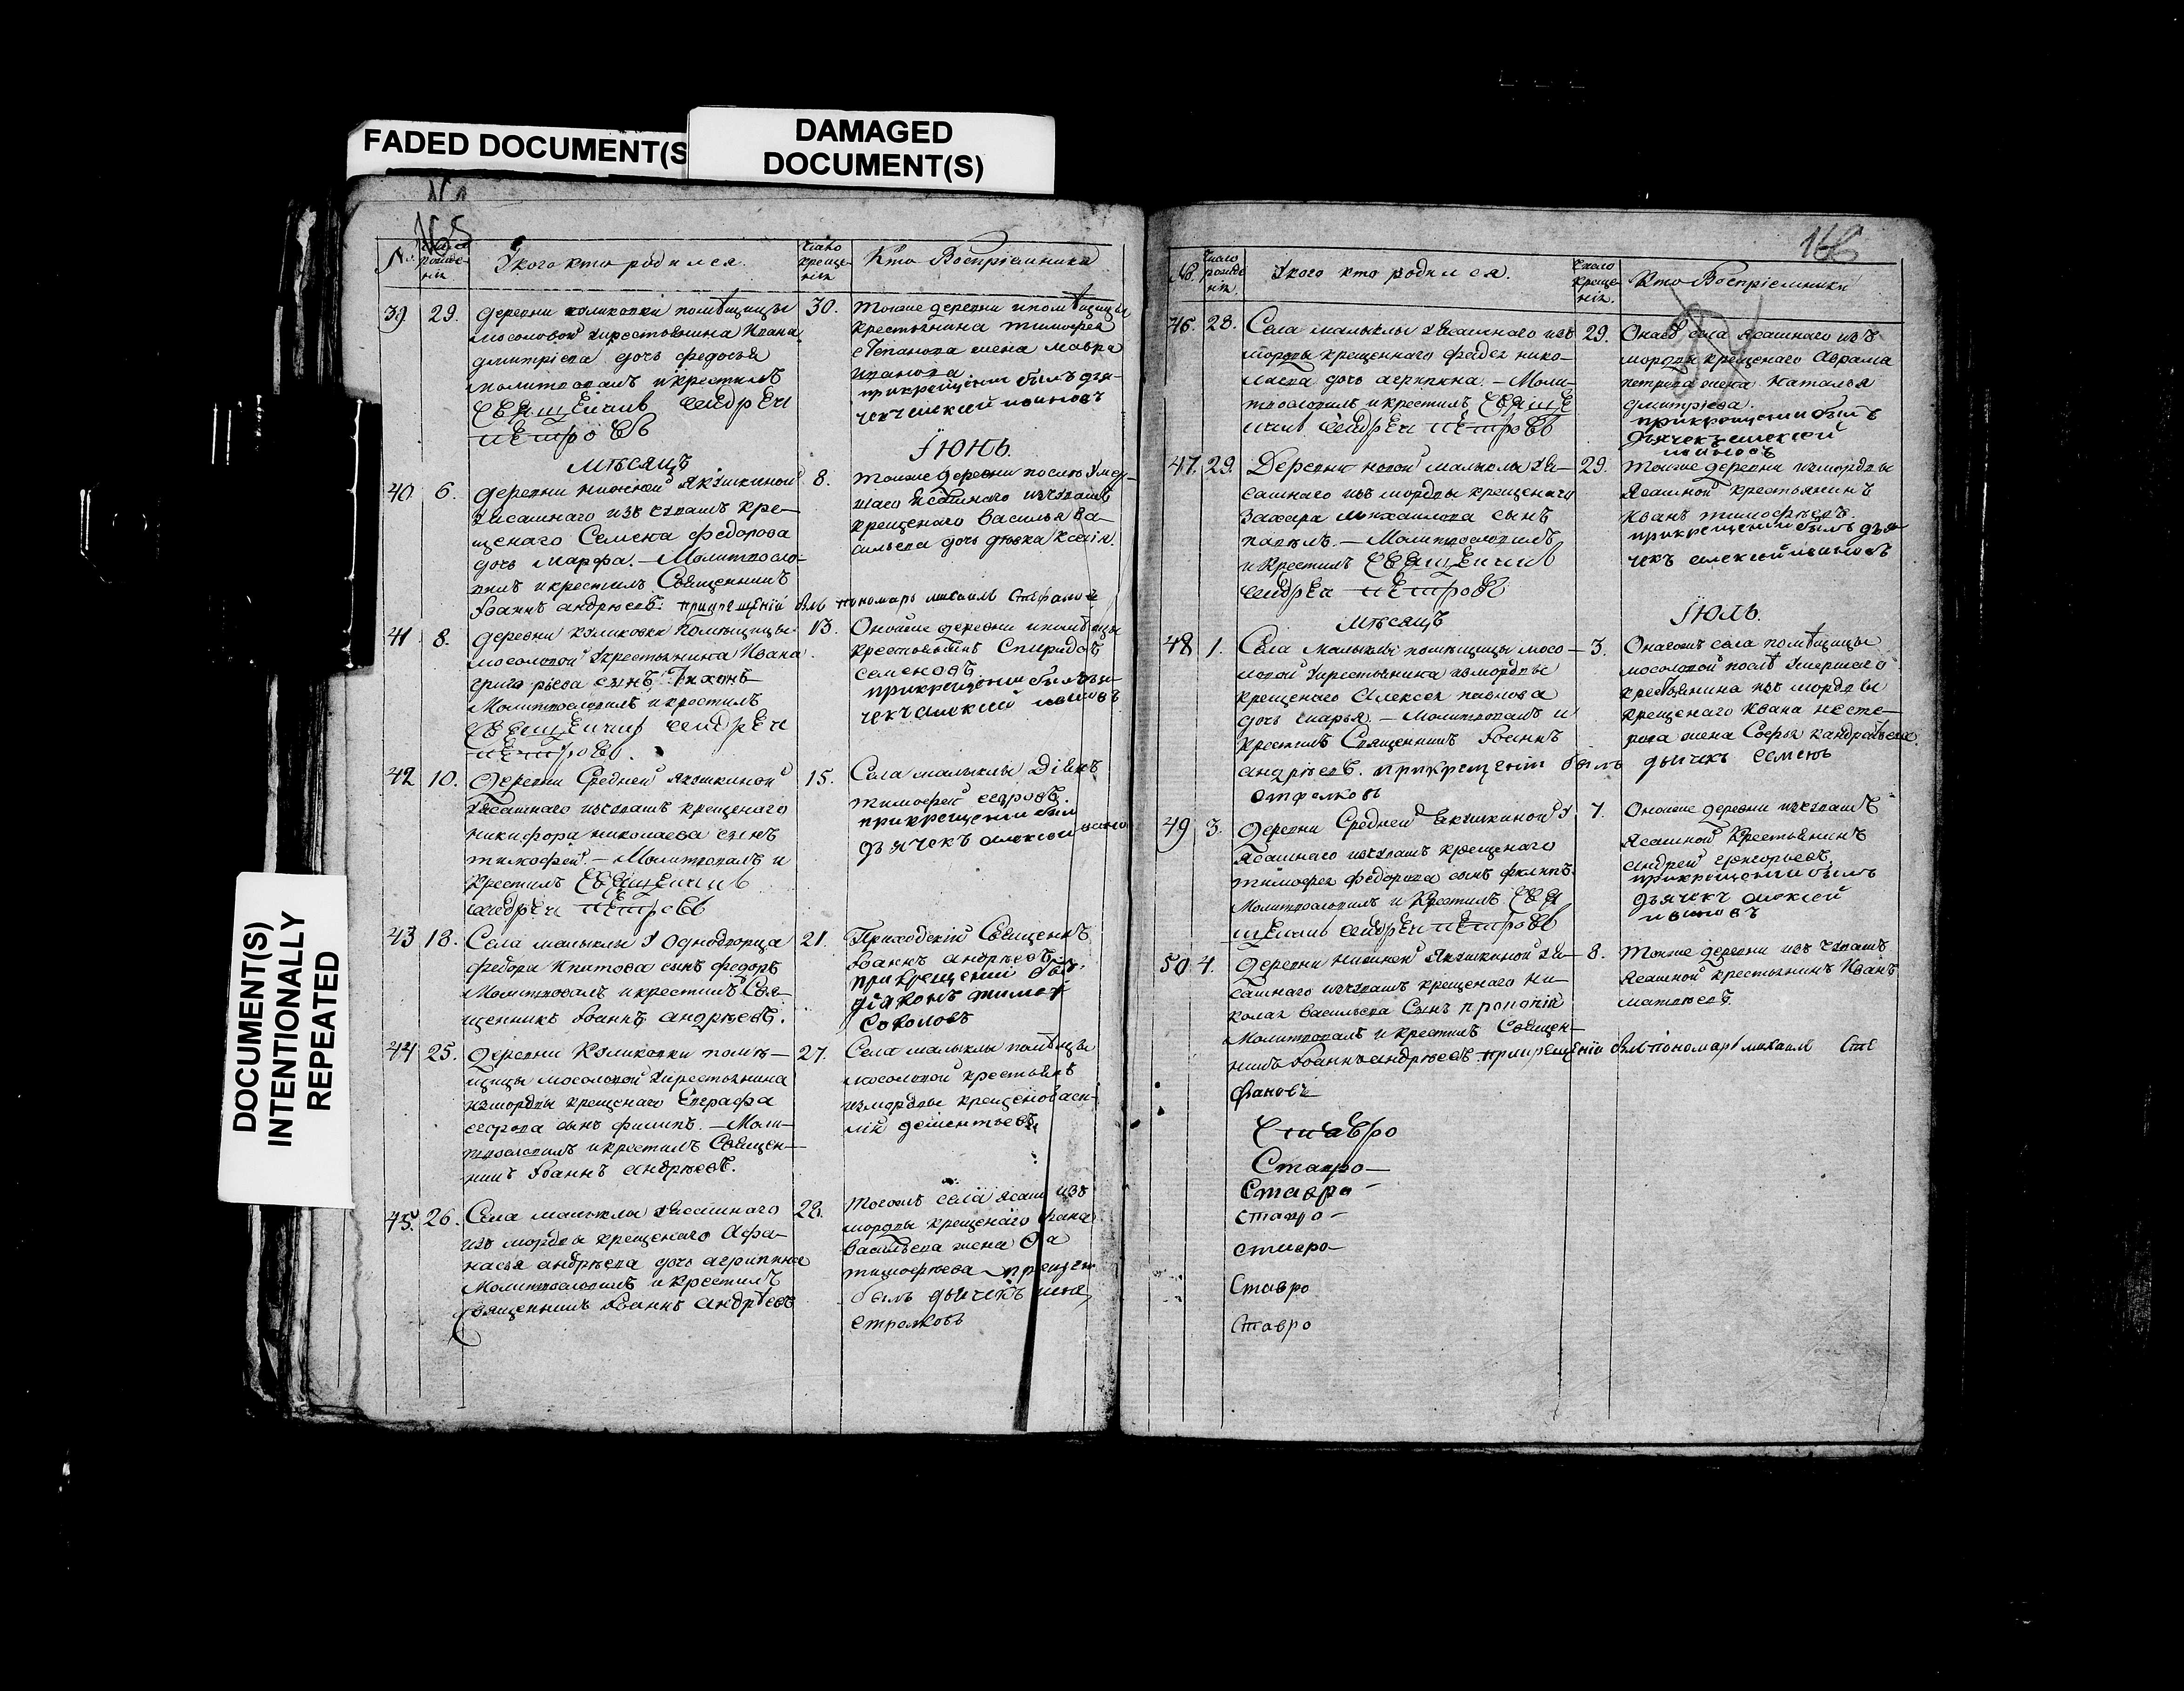 FADED DOCUMENT(S
DAMAGED
DOCUMENT(S)
DOCUMENT(S)
INTENTIONALLY
REPEATED
165
№
число рожде-нія
У кого кто родился.
число креще-нія
Кто Воспріемники
39 29.
деревни куликовки помѣщицы
мосоловой Укрестьянина Ивана
дмитріева дочь федосья
молитвовалъ икрестилъ
СВЯЩЕнникъ андрЕй
пЕтровъ
30.
тоиже деревни ипомѣщицы
крестьянина тимофея
степанова жена мавра
иванова
прикрещеніи былъ дья-
чекъ алексей ивановъ
Мѣсяцъ Їюнь.
40 6.
деревни нижней Якушкиной
Уясашнаго изъ чувашъ кре-
щенаго Семена федорова
дочь марфа. – Молитвосло-
вилъ икрестилъ Священникъ
Їоаннъ андрѣевъ. прикрещеніи былъ пономарь михаилъ Стефановъ
8.
тоиже деревни послѣ Умер
шаго Ясашнаго изчувашъ
крещенаго Василья Ва-
сильева дочь дѣвка
41 8.
деревни куликовки Помѣщицы
мосоловой Укрестьянина Ивана
григорьева сынъ Тихонъ
Молитвословилъ икрестилъ
СВЯЩЕнникъ андрЕй
пЕтровъ.
13.
Оноиже деревни ипомѣщицы
крестьянинъ Спиридонъ
семеновъ
прикрещеніи былъ дья-
чекъ алексей ивановъ
42 10.
Деревни Средней якушкиной
Уясашнаго изчувашъ крещенаго
никифора николаева сынъ
тимофей. – Молитвовалъ и
крестилъ СВЯЩЕнникъ
андрЕй пЕтровъ
15.
Села малыклы Діаконъ
тимофей
прикрещеніи былъ
дьячекъ алексей ивано
43 18.
Села малыклы У Однодворца
федора Ипатова сынъ федоръ
Молитвовалъ икрестилъ Свя-
щенникъ Їоаннъ андрѣевъ.
21.
Приходскій Священникъ
Їоаннъ андрѣевъ
прикрещеніи былъ
діаконъ тимофей
Соколовъ
44 25.
Деревни Куликовки помѣ-
щицы мосоловой Укрестьянина
измордвы крещенаго Евграфа
егорова сынъ филипъ. – Моли-
твословилъ икрестилъ Священ-
никъ Їоаннъ андрѣевъ.
27.
Села малыклы помѣщицы
мосоловой крестьянинъ
измордвы крещеной васи-
лій дементьевъ
45. 26.
Села малыклы Уясашнаго
изъ мордвы крещенаго Афа-
насья андрѣева дочь агрипина
Молитвословилъ икрестилъ
Священникъ Їоаннъ андрѣевъ
28.
Тогожъ села ясаш изъ
мордвы крещенаго
Васильева жена
тимофѣева
былъ дьячекъ
стрелковъ
166
№
число рожде нія.
У кого кто родился.
число креще-нія.
Кто Воспріемники
46. 28.
Села малыклы Уясашнаго изъ
мордвы крещеннаго фадея нико-
лаева дочь агрипина. – Моли-
твословилъ икрестилъ СВЯЩЕ
нникъ андрЕй пЕтровъ
29.
Онагожъ села Ясашнаго изъ
мордвы крещенаго Аврама
петрова жена Наталья
дмитріева.
прикрещеніи былъ
дьячекъ алексей
ивановъ
47. 29.
Деревни новой малыклы Уя-
сашнаго изъ мордвы крещенаго
Захара михайлова сынъ
павелъ. – Молитвословилъ
и крестилъ СВЯЩЕнникъ
андрЕй пЕтровъ
29.
Тоиже деревни измордвы
Ясашной крестьянинъ
Иванъ тимофѣевъ.
прикрещеніи былъ дья
чекъ алексей ивановъ
Мѣсяцъ Їюль.
48 1.
Села малыклы помѣщицы мосо-
ловой Укрестьянина измордвы
крещенаго Алексея павлова
дочь марья. – Молитвовалъ и
крестилъ Священникъ Їоаннъ
андрѣевъ. прикрещеніи былъ дьячекъ семенъ
стрелковъ
3.
Онагожъ села помѣщицы
мосоловой послѣ Умершаго
крестьянина изъ мордвы
крещенаго Ивана несте-
рова жена Софья кандратьева.
49 3.
Деревни Средней Якушкиной У
Ясашнаго изчувашъ крещенаго
тимофея федорова сынъ филипъ.
Молитвословилъ и крестилъ СВЯ
щЕнникъ андрЕй пЕтровъ
7.
Оноиже деревни изчувашъ
Ясашной Крестьянинъ
андрей григорьевъ
прикрещеніи былъ
дьячекъ алексей
ивановъ
50 4.
Деревни нижней Якушкиной Уя-
сашнаго изчувашъ крещенаго Ни-
колая Васильева Сынъ прокопій
Молитвовалъ и крестилъ Священ-
никъ Їоаннъ андрѣевъ прикрещеніи былъ пономарь михаилъ Сте
фановъ
8.
Тоиже деревни изъ чувашъ
Ясашной крестьянинъ Иванъ
матвѣевъ
Ставро
Ставро–
Ставро–
ставро–
ставро–
Ставро
Ставро